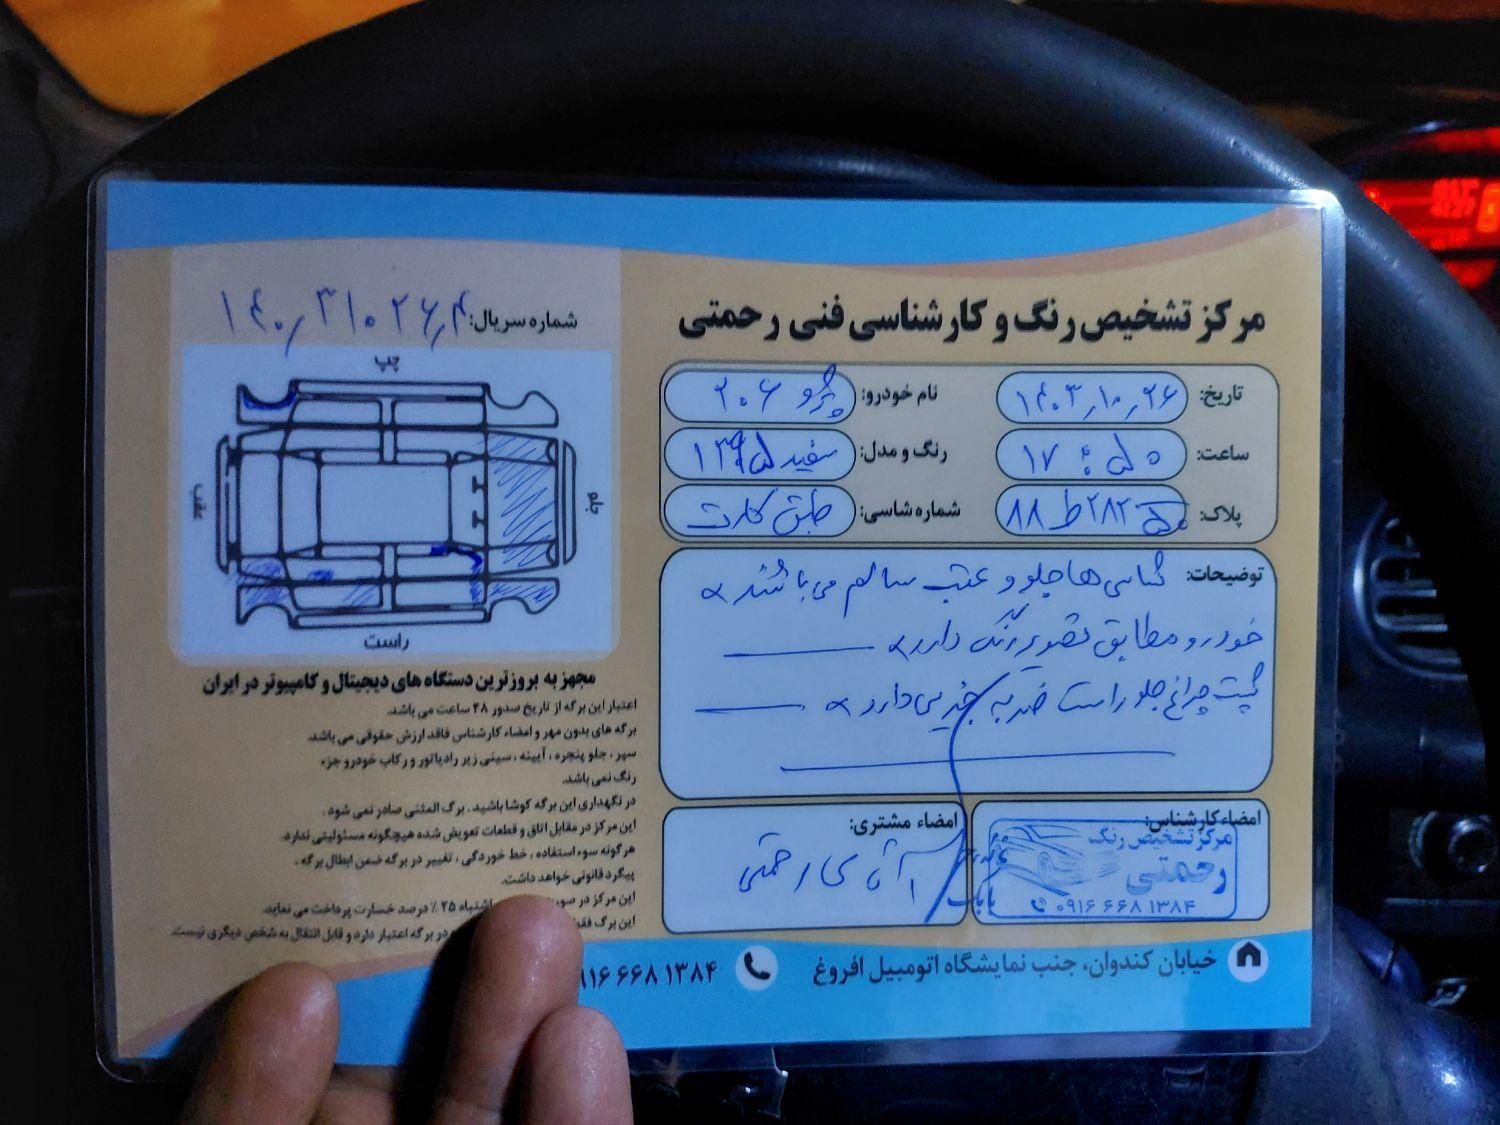 مرکز تشخیص رنگ و کارشناسی فنی رحمتی
شماره سریال:
تاریخ: ۱۴۰۳٫۱۰٫۲۶
نام خودرو: پژو ۲۰۶
ساعت: ۱۷:۵۰
رنگ و مدل: سفید ۱۳۹۵
پلاک: ۲۸۲ ط ۸۸
شماره شاسی: طبق کارت
توضیحات: شاسی ها جلو و عقب سالم می باشند
خودرو مطابق تصویر رنگ دارد
پشت چراغ جلو راست ضربه جزیی دارد
امضاء کارشناس:
مرکز تشخیص رنگ
رحمتی
۰۹۱۶ ۶۶۸ ۱۳۸۴
امضاء مشتری:
آقای رحمتی
چپ
جلو
عقب
راست
مجهز به بروزترین دستگاه های دیجیتال و کامپیوتر در ایران
اعتبار این برگه از تاریخ صدور ۴۸ ساعت می باشد.
برگه های بدون مهر و امضاء کارشناس فاقد ارزش حقوقی می باشد.
سپر ، جلو پنجره ، آیینه ، سینی زیر رادیاتور و رکاب خودرو جزء
رنگ نمی باشد.
در نگهداری این برگه کوشا باشید . برگ المثنی صادر نمی شود .
این مرکز در مقابل اتاق و قطعات تعویض شده هیچگونه مسئولیتی ندارد.
هرگونه سوء استفاده ، خط خوردگی ، تغییر در برگه ضمن ابطال برگه ،
پیگرد قانونی خواهد داشت.
این مرکز در اشتباه ۲۵ ٪ درصد خسارت پرداخت می نماید.
این برگ در برگه اعتبار دارد و قابل انتقال به شخص دیگری نیست.
خیابان کندوان، جنب نمایشگاه اتومبیل افروغ
۹۱۶ ۶۶۸ ۱۳۸۴